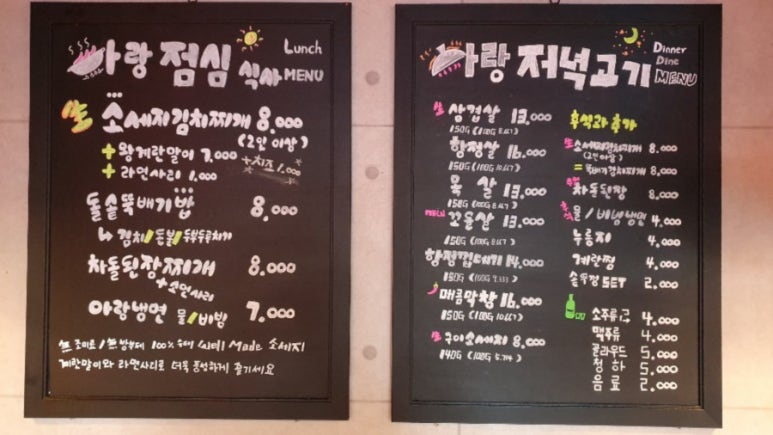 아랑 점심 식사
Lunch
MENU
생 소세지김치찌개 8.000
(2인 이상)
+ 왕계란말이 7.000
+ 치즈 1.000
+ 라면사리 1.000
돌솥뚝배기밥 8.000
↳ 김치/돈불/
차돌된장찌개 8.000
+ 소면사리
아랑냉면 물/비빔 7.000
無 조미료 / 無 100% Made 소세지
계란말이와 라면사리로 더욱 풍성하게 즐기세요
아랑 저녁고기
Dinner
Dine
MENU
생 삼겹살 13.000
150G (100G 8.667)
항정살 16.000
150G (100G 10.667)
목살 13.000
150G (100G 8.667)
NEW 꼬들살 13.000
150G (100G 8.667)
항정껍데기 14.000
150G (100G 9.333)
매콤막창 16.000
150G (100G 10.667)
생 구이소세지 8.000
140G (100G 5.714)
후식과 추가
생 소세지김치찌개 8.000
(2인이상)
= 뚝배기김치찌개 8.000
차돌된장 8.000
물/비빔냉면 4.000
누룽지 4.000
계란찜 4.000
SET 2.000
소주류 4.000
맥주류 4.000
클라우드 5.000
청하 5.000
음료 2.000